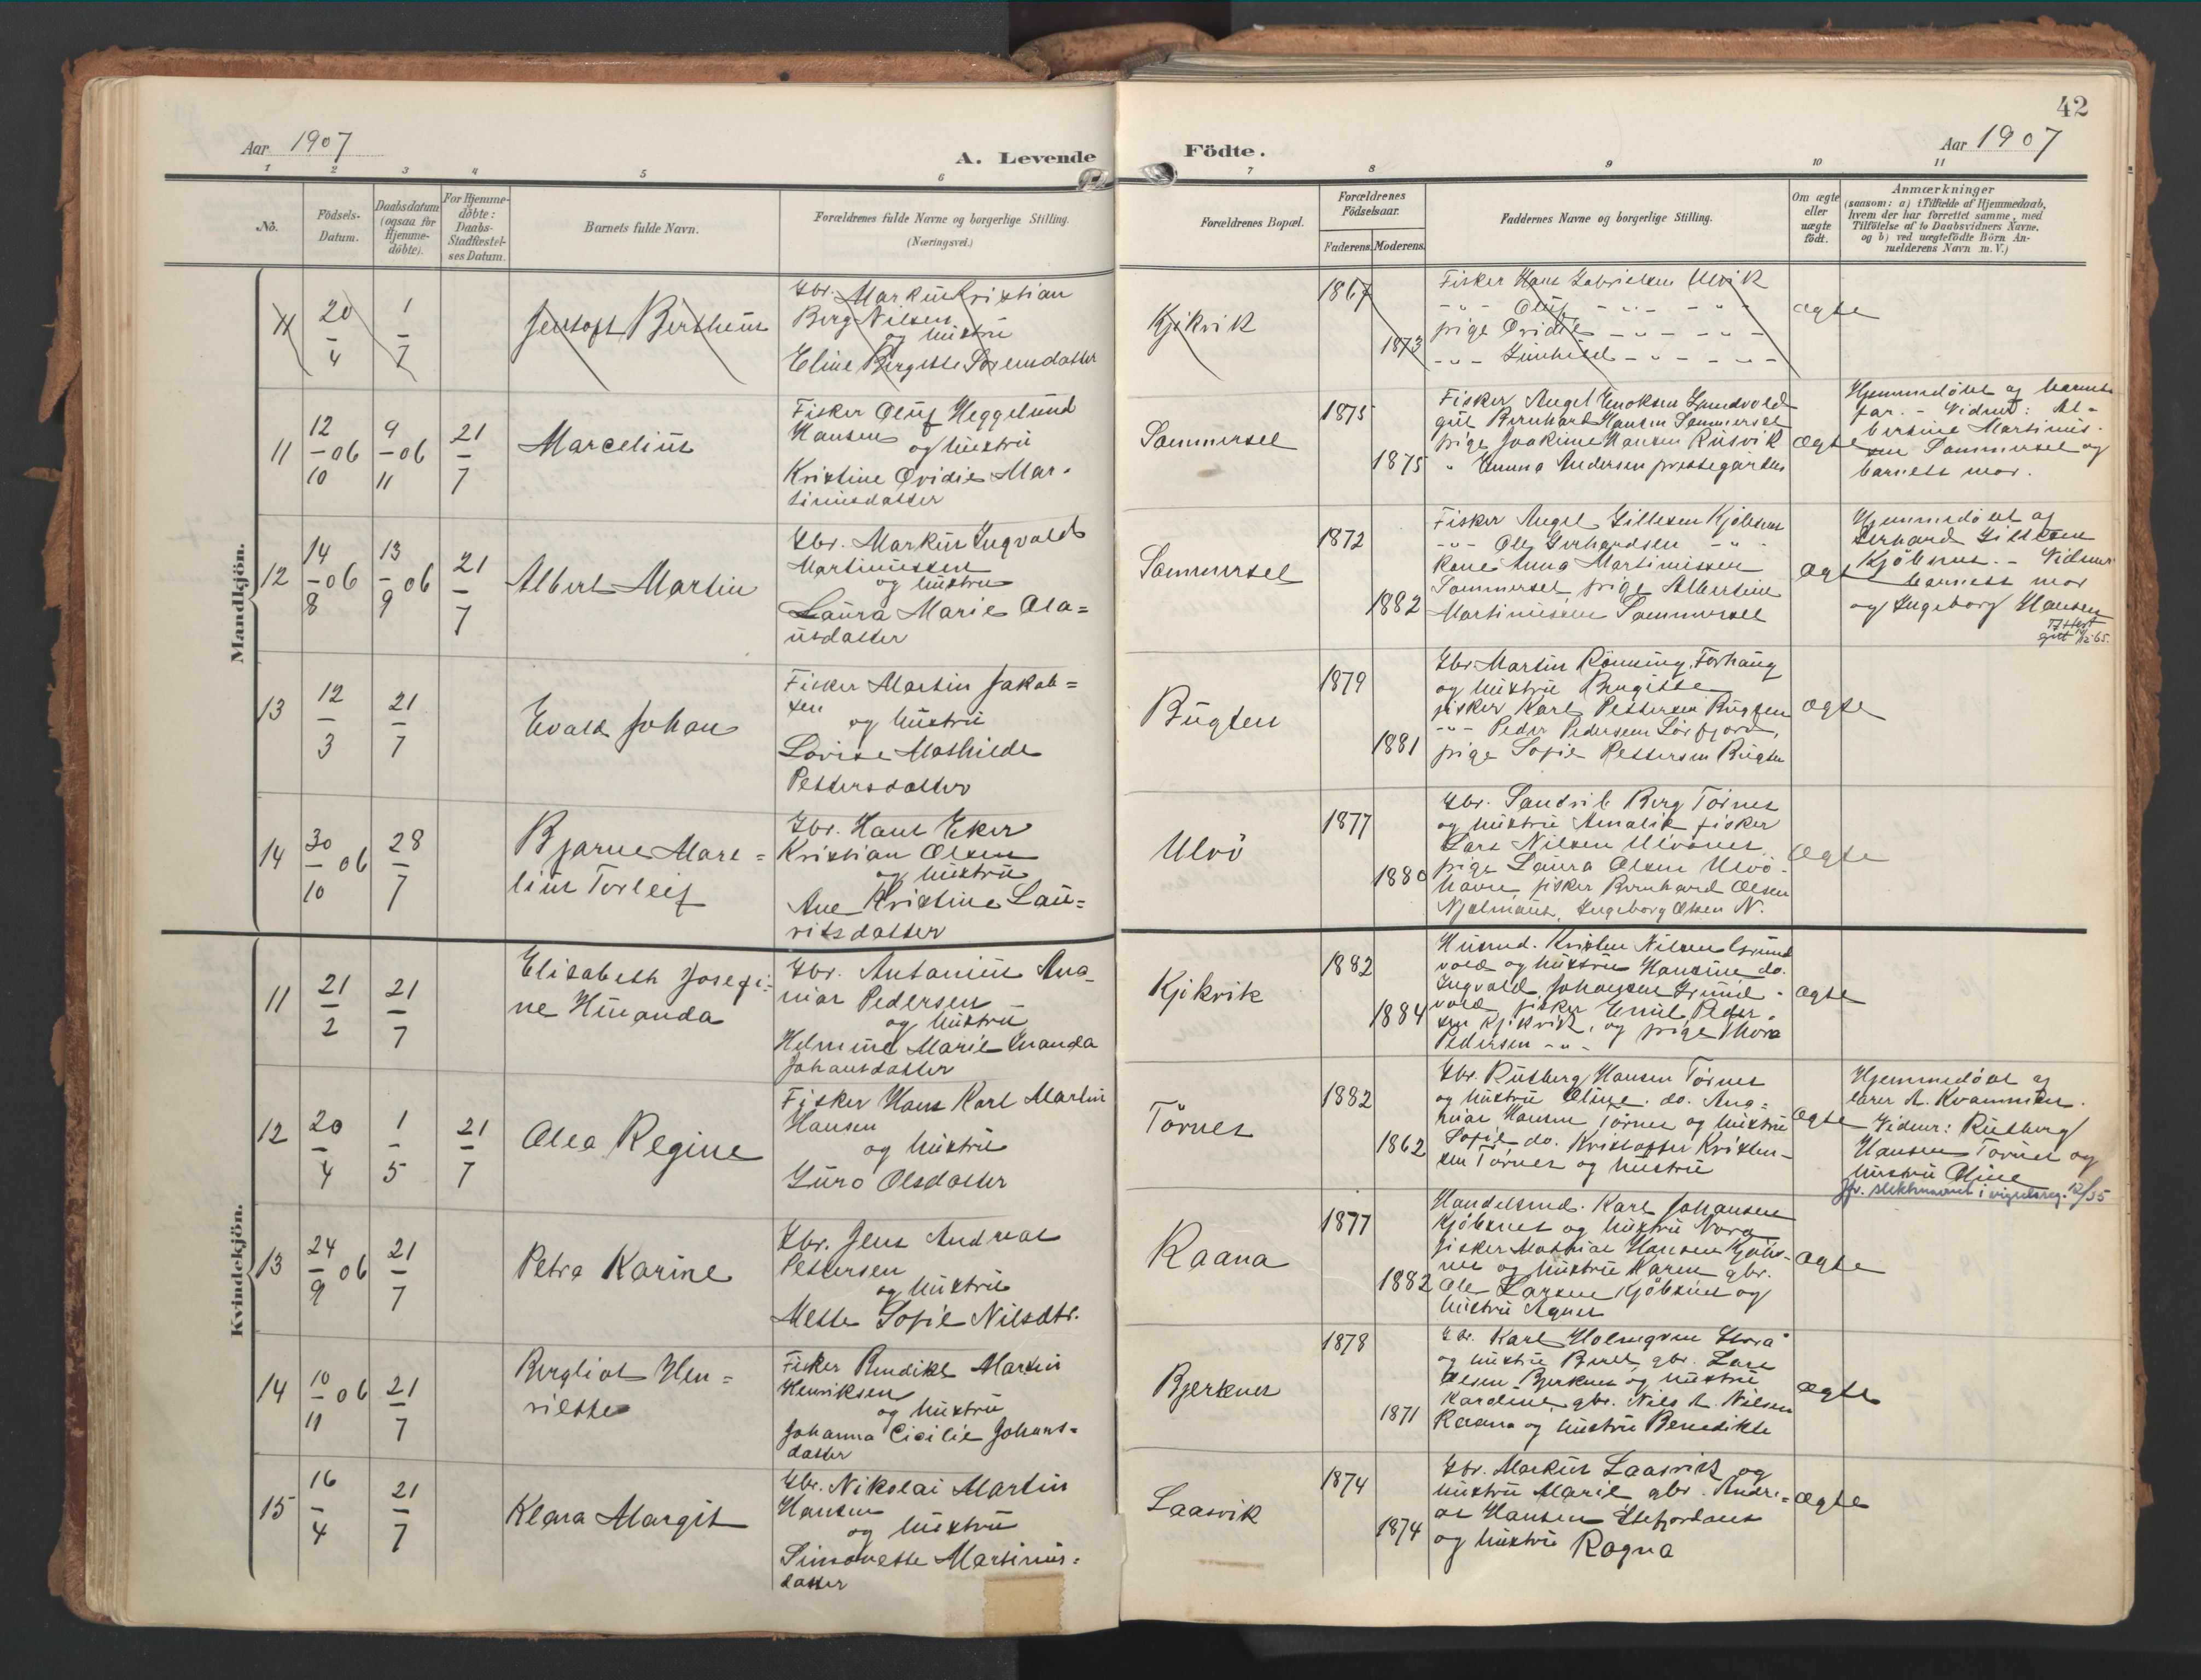 42
Aar 1907
A. Levende
Födte.
Aar 1907
1 2 3 4 5 6 7 8 9 10 11
No.
Födsels-
Datum.
Daabsdatum
(ogsaa for
Hjemme-
döbte).
For Hjemme-
döbte:
Daabs-
Stadfæstel-
ses Datum.
Barnets fulde Navn.
Forældrenes fulde Navne og borgerlige Stilling.
(Næringsvei.)
Forældrenes Bopæl.
Forældrenes
Födselsaar.
Faderens. Moderens.
Faddernes Navne og borgerlige Stilling.
Om ægte
eller
uægte
födt.
Anmærkninger
(saasom: a) i Tilfælde af Hjemmedaab,
hvem der har forrettet samme, med
Tilföielse af to Daabsvidners Navne,
og b) ved uægtefödte Börn An-
melderens Navn m. V.)
Mandkjön.
11
20/4
1/7
Jentoft Bertheus
Gbr. Markus Kristian
Berg Nilsen
og hustru
Eline Birgitte Sørensdatter
Kjikvik
1867
1873
Fisker Hans Gabrielsen Ulvik
-"- Oluf -"- -"-
pige Ovidie -"- -"-
-"- Gunhild -"- -"-
ægte
11
12/10 -06
9/11 -06
21/7
Marcelius
Fisker Oluf Heggelund
Hansen
og hustru
Kristine Ovidie Mar-
tinusdatter
Sommersel
1875
1875
Fisker Angel Enoksen Grundvold
gut Bernhard Hansen Sommersel
pige Joakime Hansen Rusvik
" Emma Andersen prestegården
ægte
Hjemmedöbt af barnets
far. - Vidner: Al-
bertine Martinus-
sen Sommersel og
barnets mor.
12
14/8 -06
13/9 -06
21/7
Albert Martin
Gbr. Markus Ingvald
Martinussen
og hustru
Laura Marie Ola-
usdatter
Sommersel
1872
1882
Fisker Angel Gittesen Kjöbsnes
-"- Ole Gerhardsen -"-
kone Anna Martinussen
Sommersel, pige Albertine
Martinussen Sommersel
ægte
Hjemmedöbt af
Gerhard Gittesen
Kjöbsnes. - Vidner
barnets mor
og Ingeborg Hansen
13
12/3
21/7
Evald Johan
Fisker Martin Jakob-
sen
og hustru
Lovise Mathilde
Pettersdatter
Bugten
1879
1881
Gbr. Martin Rönning, Forhaug
og hustru Birgitte
fisker Karl Pettersen Bugten
-"- Peder Pedersen Sörfjord,
pige Sofie Pettersen Bugten
ægte
14
30/10 06
28/7
Bjarne Mari-
lius Torleif
Gbr. Hans Eker
Kristian Olsen
og hustru
Ane Kristine Lau-
ritsdatter
Ulvö
1877
1880
Gbr. Sandvik Berg Törnes
og hustru Amalie, fisker
Lars Nilsen Ulvönes,
pige Laura Olsen Ulvö-
havn, fisker Bernhard Olsen
Njalmaus, Ingeborg Olsen N.
ægte
Kvindekjön.
11
21/2
21/7
Elisabeth Josefi-
ne Huanda
Gbr. Antonius Ana-
nias Pedersen
og hustru
Helmine Marie Inanda
Johansdatter
Kjikvik
1882
1884
Husmd. Kristen Nilsen Grund-
vold og hustru Hansine do.
Ingvald Johansen Grund-
vold, fisker Emil Peder-
sen Kjikvik, og pige Thora
Pedersen -"-
ægte
12
20/4
1/5
21/7
Alea Regine
Fisker Hans Karl Martin
Hansen
og hustru
Guro Olsdatter
Törnes
1882
1862
Gbr. Rutberg Hansen Törnes
og hustru Oline. do. Ana-
nias Hansen Törnes og hustru
Sofie do. Kristoffer Kristen-
sen Törnes og hustru
ægte
Hjemmedöbt af
lærer A. Kvammen.
Vidner: Rutberg
Hansen Törnes og
hustru Oline
Jfr. slektsnavnet i vigselsreg. 12/35
13
24/9 06
21/7
Petra Karine
Gbr. Jens Andreas
Pettersen
og hustru
Mette Sofie Nilsdtr.
Raana
1877
1882
Handelsmd. Karl Johansen
Kjöbsnes og hustru Nora
fisker Mathias Hansen Kjöbs-
nes og hustru Karen gbr.
Ole Larsen Kjöbsnes og
hustru Agnes
ægte
14
10/11 06
21/7
Bergliot Hen-
riette
Fisker Bendikt Martin
Henriksen
og hustru
Johanna Cicilie Johans-
datter
Bjerknes
1878
1871
Gbr. Karl Holmgren Storå
og hustru Beret, gbr. Lars
Olsen Bjerknes og hustru
Karoline, gbr. Nils A. Nilsen
Raana og hustru Benedikte
ægte
15
16/4
21/7
Klara Margit
Gbr. Nikolai Martin
Hansen
og hustru
Simonette Martinus-
datter
Laasvik
1874
1874
Gbr. Markus Laasvik og
hustru Marie gbr. Andre-
as Hansen Stefjordnes
og hustru Ragna
ægte